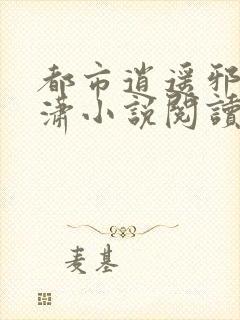 都市逍遥邪
潇小說閱讀
麦基